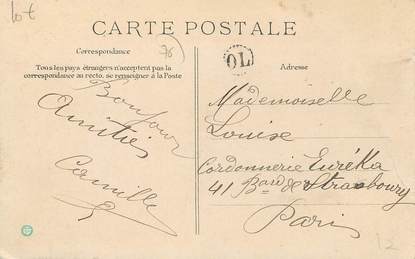 lot
CARTE POSTALE
Correspondance
Tous les pays étrangers n'acceptent pas la
correspondance au recto, se renseigner à la Poste
76
OL
Adresse
Bonjour
Amitiés
Camille
Mademoiselle
Louise
Cordonnerie Euréka
41 Bard de Strasbourg
Paris
12